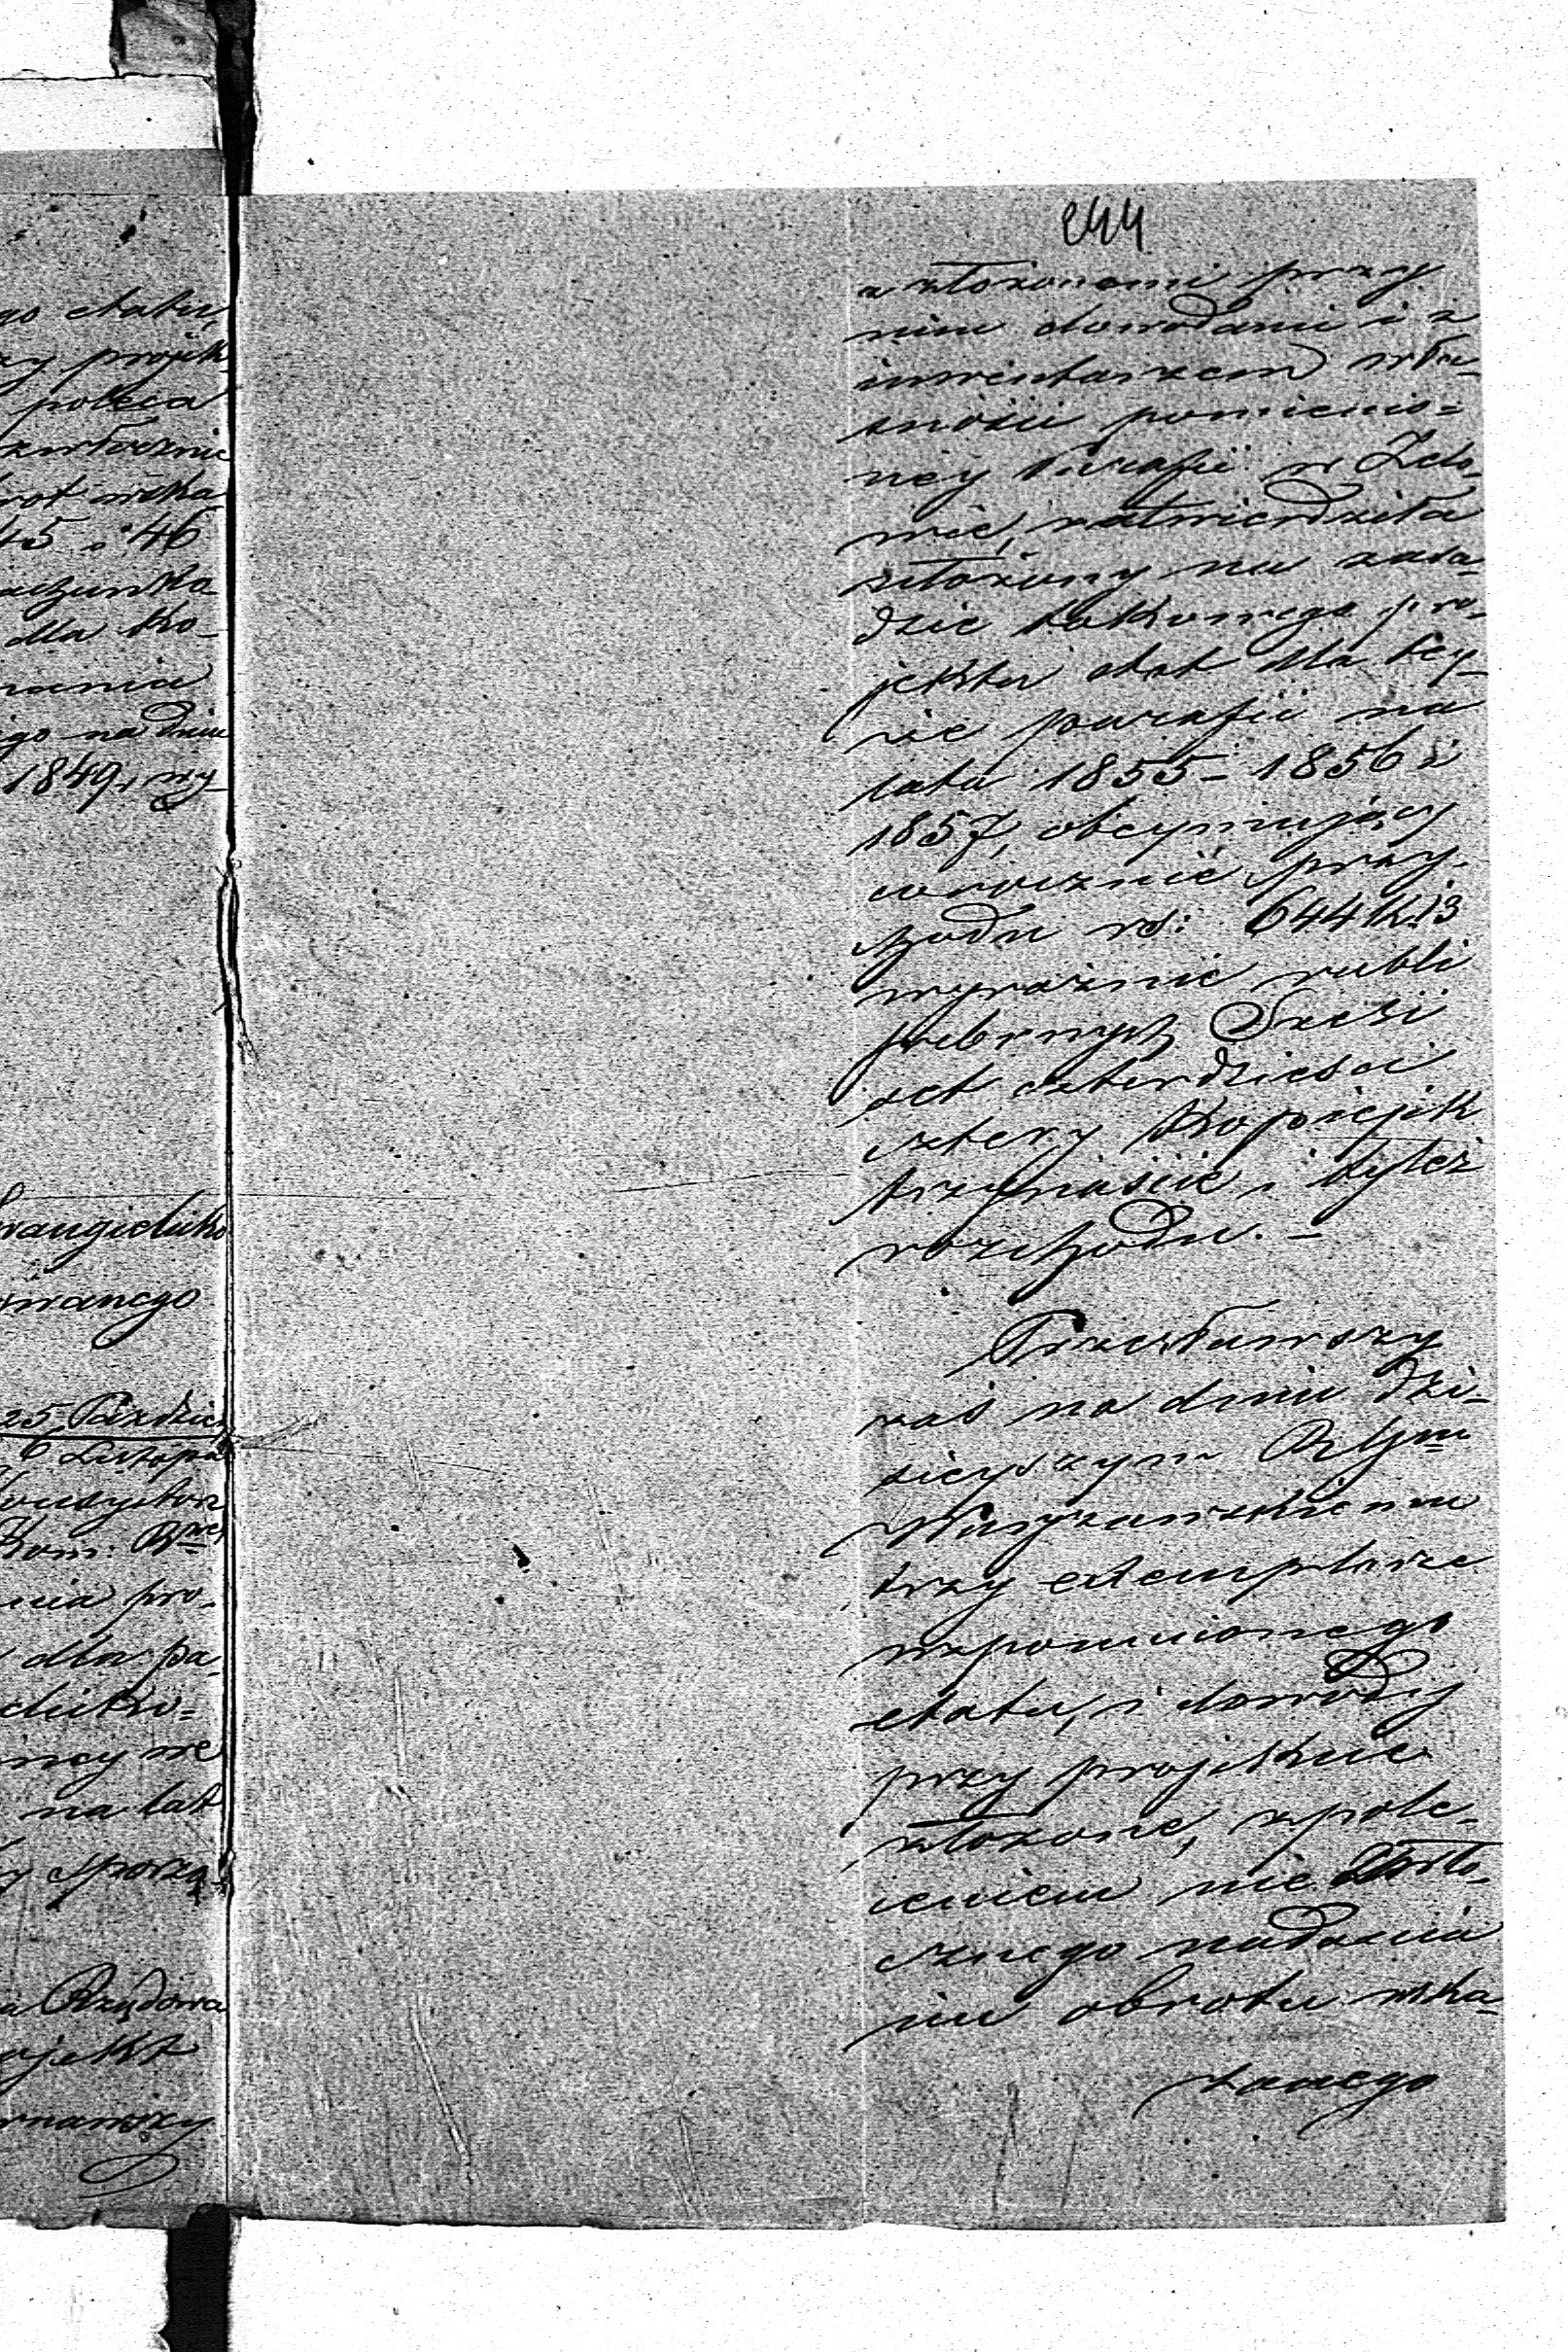 go etatu,
zy projek-
poleca
zwłocznie
rot wska
45 i 46
achunko
dla Ko-
nania
igo na dniu
1849, wy-
wangelicko
owanego
25 Paździer
6 Listopa
Konsystorz
Kom: Rwa
nia pro-
dla pa-
elicko=
ney we
na lat
y sporzą-
a Rządowa
ojekt
rnawszy
244
z złożonemi przy
nim dowodami i z
inwentarzem wła-
sności pomienio=
néy Parafii w Zelo-
wie, zatwierdziła
ułożony na zasa-
dzie takowego pro-
jektu etat dla tey-
że parafii na
lata 1855 – 1856 i
1857, obeymujący
corocznie przy-
chodu rs: 644 k. 13
wyraźnie rubli
srebrnych Sześć
set czterdzieści
cztery kopiejek
trzynaście i tyleż
rozchodu. –
Przesławszy
zaś na dniu dzi-
sieyszym Rządm
Warszawskiemu
trzy exemplarze
wspomnionego
etatu, i dowody
przy projekcie
złożone, z pole-
ceniem nie zwło-
cznego nadania
im obrotu wska-
zanego